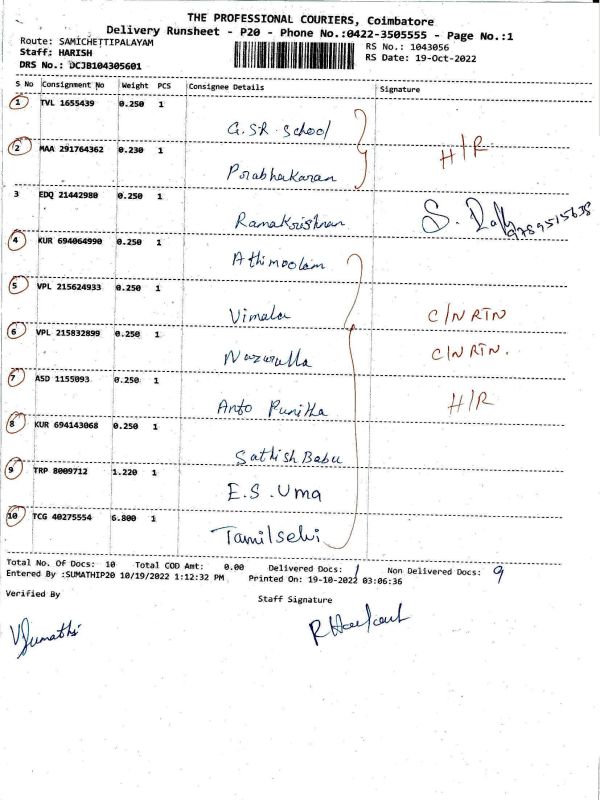 THE PROFESSIONAL COURIERS, Coimbatore
Delivery Runsheet - P20 - Phone No.:0422-3505555 - Page No.:1
Route: SAMICHETTIPALAYAM
Staff: HARISH
DRS No.: DCJB104305601
RS No.: 1043056
RS Date: 19-Oct-2022
S No Consignment No Weight PCS Consignee Details Signature
1 TVL 1655439 0.250 1
G.S.R. School
2 MAA 291764362 0.230 1 H/R
Prabhakaran
3 EDQ 21442980 0.250 1
Ramakrishnan S. 9789515638
4 KUR 694064990 0.250 1
Athimoolam
5 VPL 215624933 0.250 1
Vimala C/N RTN
6 VPL 215832899 0.250 1
Nazurulla C/N RTN.
7 ASD 1155093 0.250 1
Anto Punitha H/R
8 KUR 694143068 0.250 1
Sathish Babu
9 TRP 8009712 1.220 1
E.S. Uma
10 TCG 40275554 6.800 1
Tamilselvi
Total No. Of Docs: 10 Total COD Amt: 0.00 Delivered Docs: 1 Non Delivered Docs: 9
Entered By :SUMATHIP20 10/19/2022 1:12:32 PM Printed On: 19-10-2022 03:06:36
Verified By Staff Signature
V Sumathi